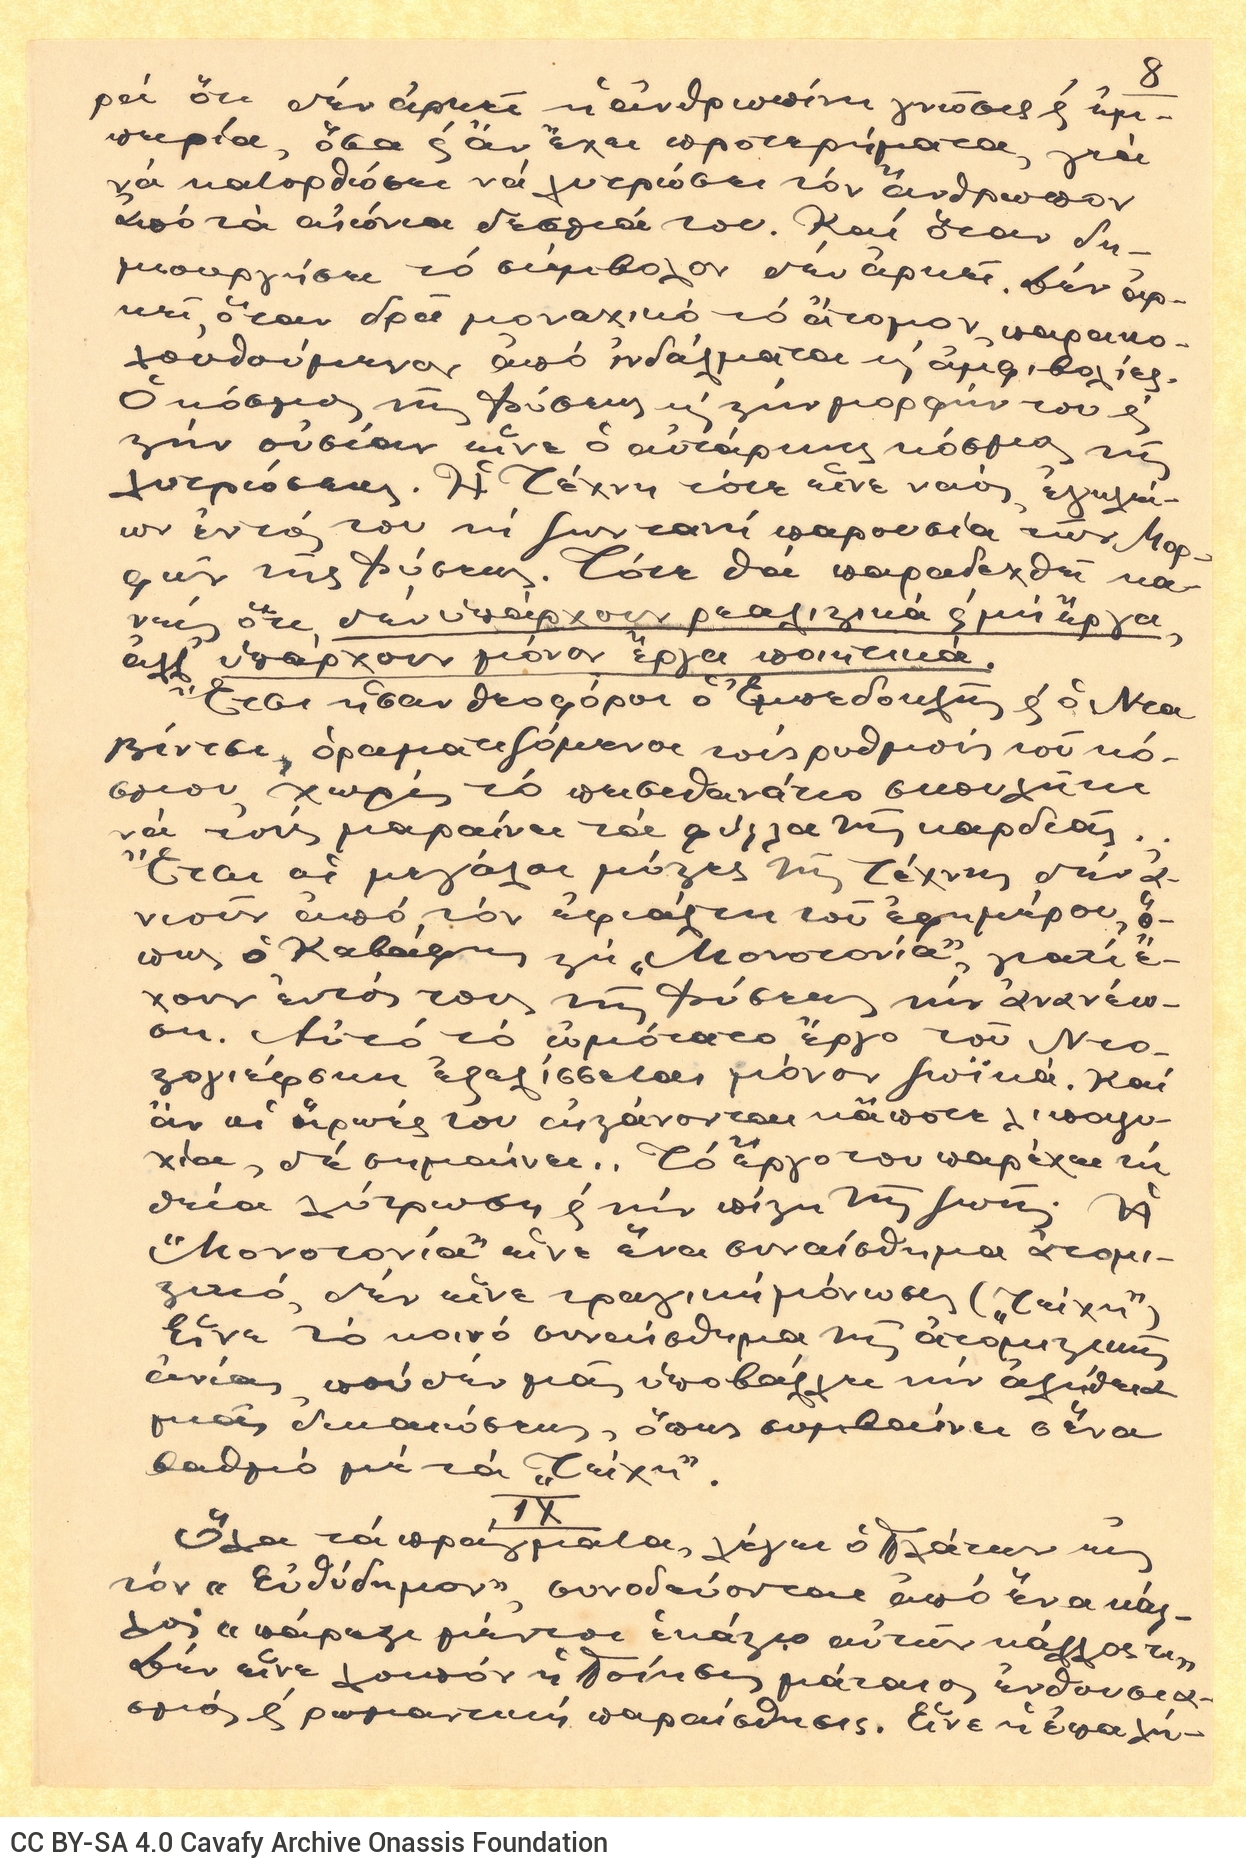 8
ρεί ὅτι δέν ἀρκεῖ ἡ ἀνθρωπίνη γνῶσις ἐμ-
πειρία, ὅσα ἄν ἔχει προτερήματα, γιά
νά κατορθώσει νά λυτρώσει τόν ἄνθρωπον
ἀπό τά αἰώνια δεσμά του. Καί ὅταν δη-
μιουργήσει τό σύμβολον δέν ἀρκεῖ. Δέν ἀρ-
κεῖ, ὅταν δρᾶ μοναχικό τό ἄτομον, παρακο-
λουθούμενον ἀπό ἰνδάλματα ἤ ἀμφιβολίες.
Ὁ κόσμος τῆς Φύσεως μορφήν του
στήν οὐσίαν εἶνε ὁ αὐτάρκης κόσμος τῆς
λυτρώσεως. Ἡ Τέχνη τότε εἶνε ναός,
ἐντός του ἡ ζωντανή παρουσία τῶν Μορ-
φῶν τῆς Φύσεως. Τότε θά παραδεχθῆ κα-
νείς ὅτι, δέν ὑπάρχουν ρεαλιστικά μή ἔργα,
ἀλλ' ὑπάρχουν μόνον ἔργα ποιητικά.
"Ἔτσι ἦσαν θεοφόροι ὁ Ἐμπεδοκλῆς ὁ Ντα
Βίντσι, ὁραματιζόμενοι τούς ρυθμούς τοῦ κό-
σμου, χωρίς τό πεισιθανάτιο σκουλῆκι
νά τούς μαραίνει τά φύλλα τῆς καρδιᾶς..
"Ἔτσι οἱ μεγάλοι μύστες τῆς Τέχνης δέν ἀ-
πό τόν ἐφιάλτη τοῦ ἐφημέρου, ὅ-
πως ὁ Καβάφης στή „Μονοτονία", γιατί ἔ-
χουν ἐντός τους τῆς Φύσεως τήν ἀνανέω-
ση. Αὐτό τό ὠμότατο ἔργο τοῦ Ντο-
στογιέφσκη ἐξελίσσεται μόνον ζωϊκά. Καί
ἄν οἱ ἥρωές του αἰσθάνονται κάποτε λιποψυ-
χία, δέ σημαίνει.. Τό ἔργο του παρέχει τή
θεία λύτρωση τήν πίστη τῆς ζωῆς. Ἡ
"Μονοτονία" εἶνε ἕνα συναίσθημα ἀτομι-
στικό, δέν εἶνε τραγική μόνωσις („Τείχη")
Εἶνε τό κοινό συναίσθημα τῆς ἀτομιστικῆς
ἀνίας, πού δέν μᾶς ὑποβάλλει τήν ἀλήθεια
μιᾶς δικαιώσεως, ὅπως συμβαίνει σ' ἕνα
βαθμό μέ τά „Τείχη".
IX
Ὅλα τά πράγματα, λέγει ὁ Πλάτων εἰς
τόν "Εὐθύδημον", συνοδεύονται ἀπό ἕνα κάλ-
λος "πάρεστι μέντοι ἑκάστῳ αὐτῶν κάλλος τι"
Δέν εἶνε λοιπόν ἡ Ποίησις μάταιος ἐνθουσια-
σμός ρωμαντική παραίσθησις. Εἶνε ἡ ἐπαλή-
CC BY-SA 4.0 Cavafy Archive Onassis Foundation